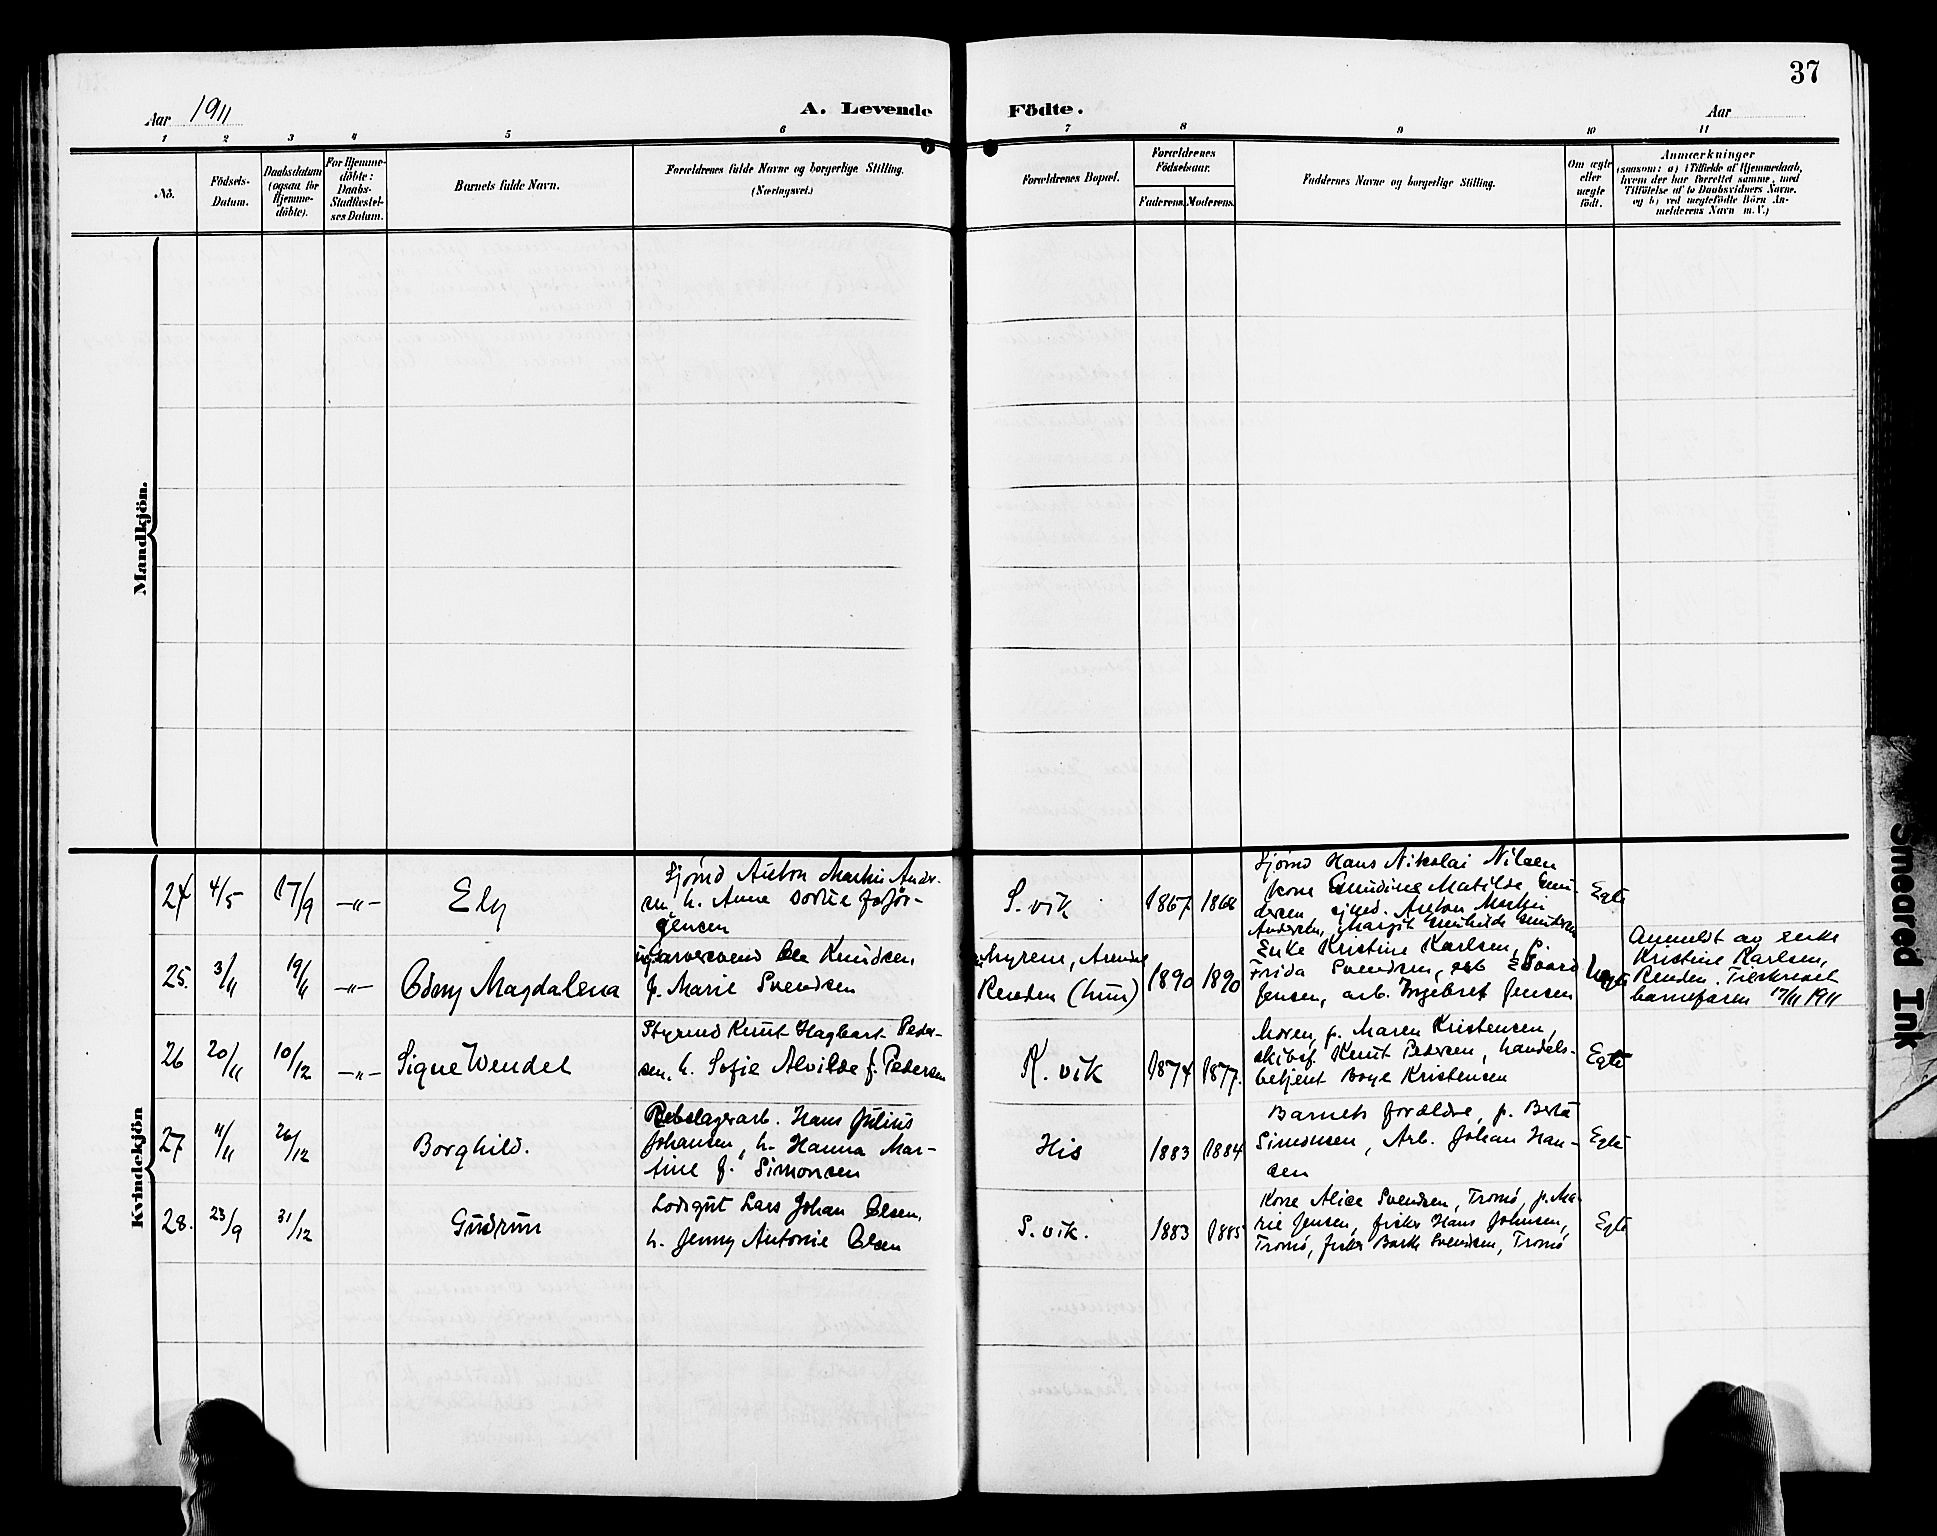 37
Aar 1911
A. Levende
Födte.
Aar
1 2 3 4 5 6 7 8 9 10 11
No.
Födsels-
Datum.
Daabsdatum
(ogsaa for
Hjemme-
döbte).
For Hjemme-
döbte:
Daabs-
Stadfæstel-
ses Datum.
Barnets fulde Navn.
Forældrenes fulde Navne og borgerlige Stilling.
(Næringsvei.)
Forældrenes Bopæl.
Forældrenes
Födselsaar.
Faderens.
Moderens.
Faddernes Navne og borgerlige Stilling.
Om ægte
eller
uægte
født.
Anmærkninger
(saasom: a) i Tilfælde af Hjemmedaab,
hvem der har forrettet samme, med
Tilföielse af to Daabsvidners Navne,
og b) ved uægtefödte Börn An-
melderens Navn m. V.)
Mandkjön.
Kvindekjön
24 4/5 17/9 -"- Ely
Sjømd Anton Martin Ander-
sen h. Anne
gensen
S. vik 1867 1868
Sjømd Hans Nikolai Nilsen
kone Gundine Matilde
dersen, sjmd. Anton Martin
Andersen, Margit
Egte
25. 3/11 19/11 -"- Odny Magdalena
Garversvend Ole Knudsen
p. Marie Svendsen
Myrene, Arendal
Renden (hun) 1890 1890
Enke Kristine Karlsen, p.
Frida Svendsen, Edvard
Jensen, arb. Ingebret Jensen
Uegte
Anmeldt av enke
Kristine Karlsen,
Renden. Tilskrevet
barnefaren 17/11 1911
26 20/11 10/12 -"- Signe Wendel
Styrmd Knut Hagbart Peder-
sen, h. Sofie Alvilde f. Pedersen
K. vik 1874 1877.
Moren, p. Maren Kristensen,
skibsf. Knut Pedersen, handels-
betjent Boye Kristensen
Egte
27 4/11 26/12 Borghild.
Rebslagerarb. Hans Julius
Johansen, h. Hanna Mar-
tine f. Simonsen
His 1883 1884
Barnets forældre, p. Berta
Simonsen, Arb. Johan Han-
sen
Egte
28. 23/9 31/12 Gudrun
Losgut Lars Johan Olsen,
h. Jenny Antonie Olsen
S. vik. 1883 1885
Kone Alice Svendsen, Tromø, p. Ma-
rie Jensen, fisker Hans Johnsen,
Tromø, fisker Svendsen, Tromø
Egte
Smeared Ink